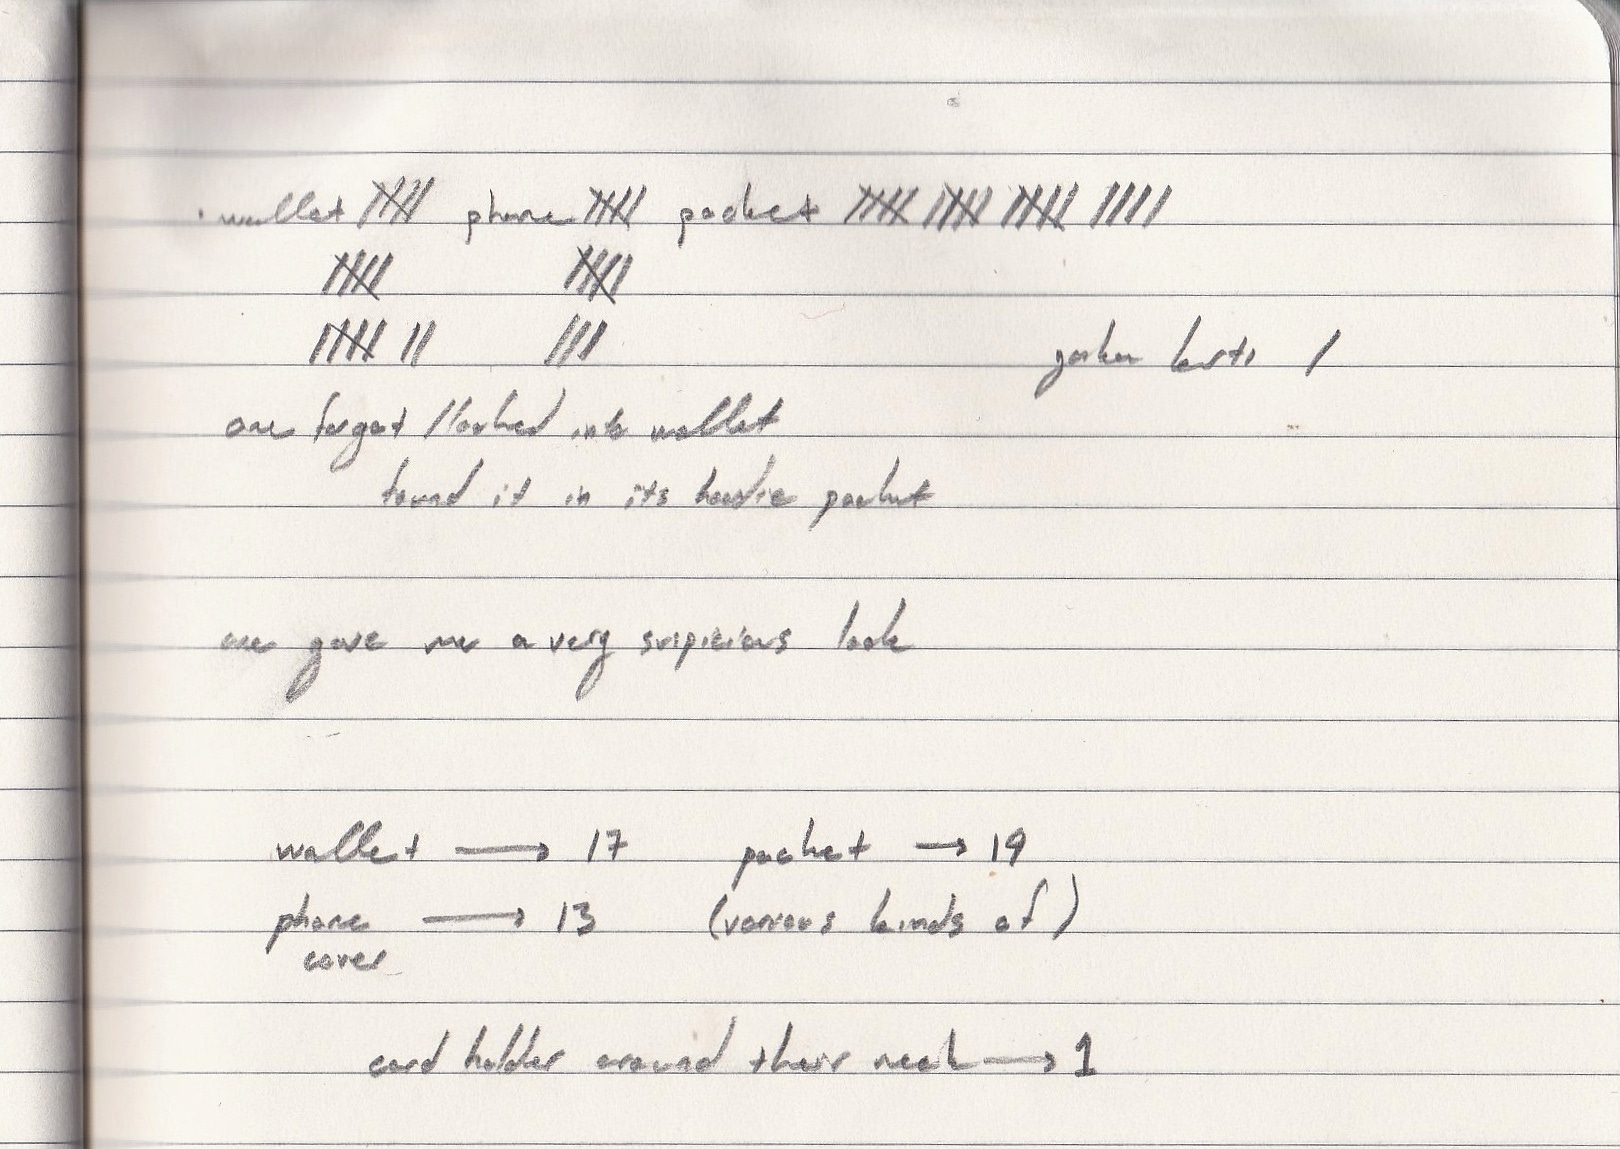 wallet 卌 phone 卌 pocket 卌 卌 卌 ||||
卌 卌
卌 || |||
/
one forgot / looked into wallet
found it in its hoodie pocket
one gave me a very suspicious look
wallet → 17 pocket → 19
phone → 13 (various kinds of)
cover
card holder around their neck → 1